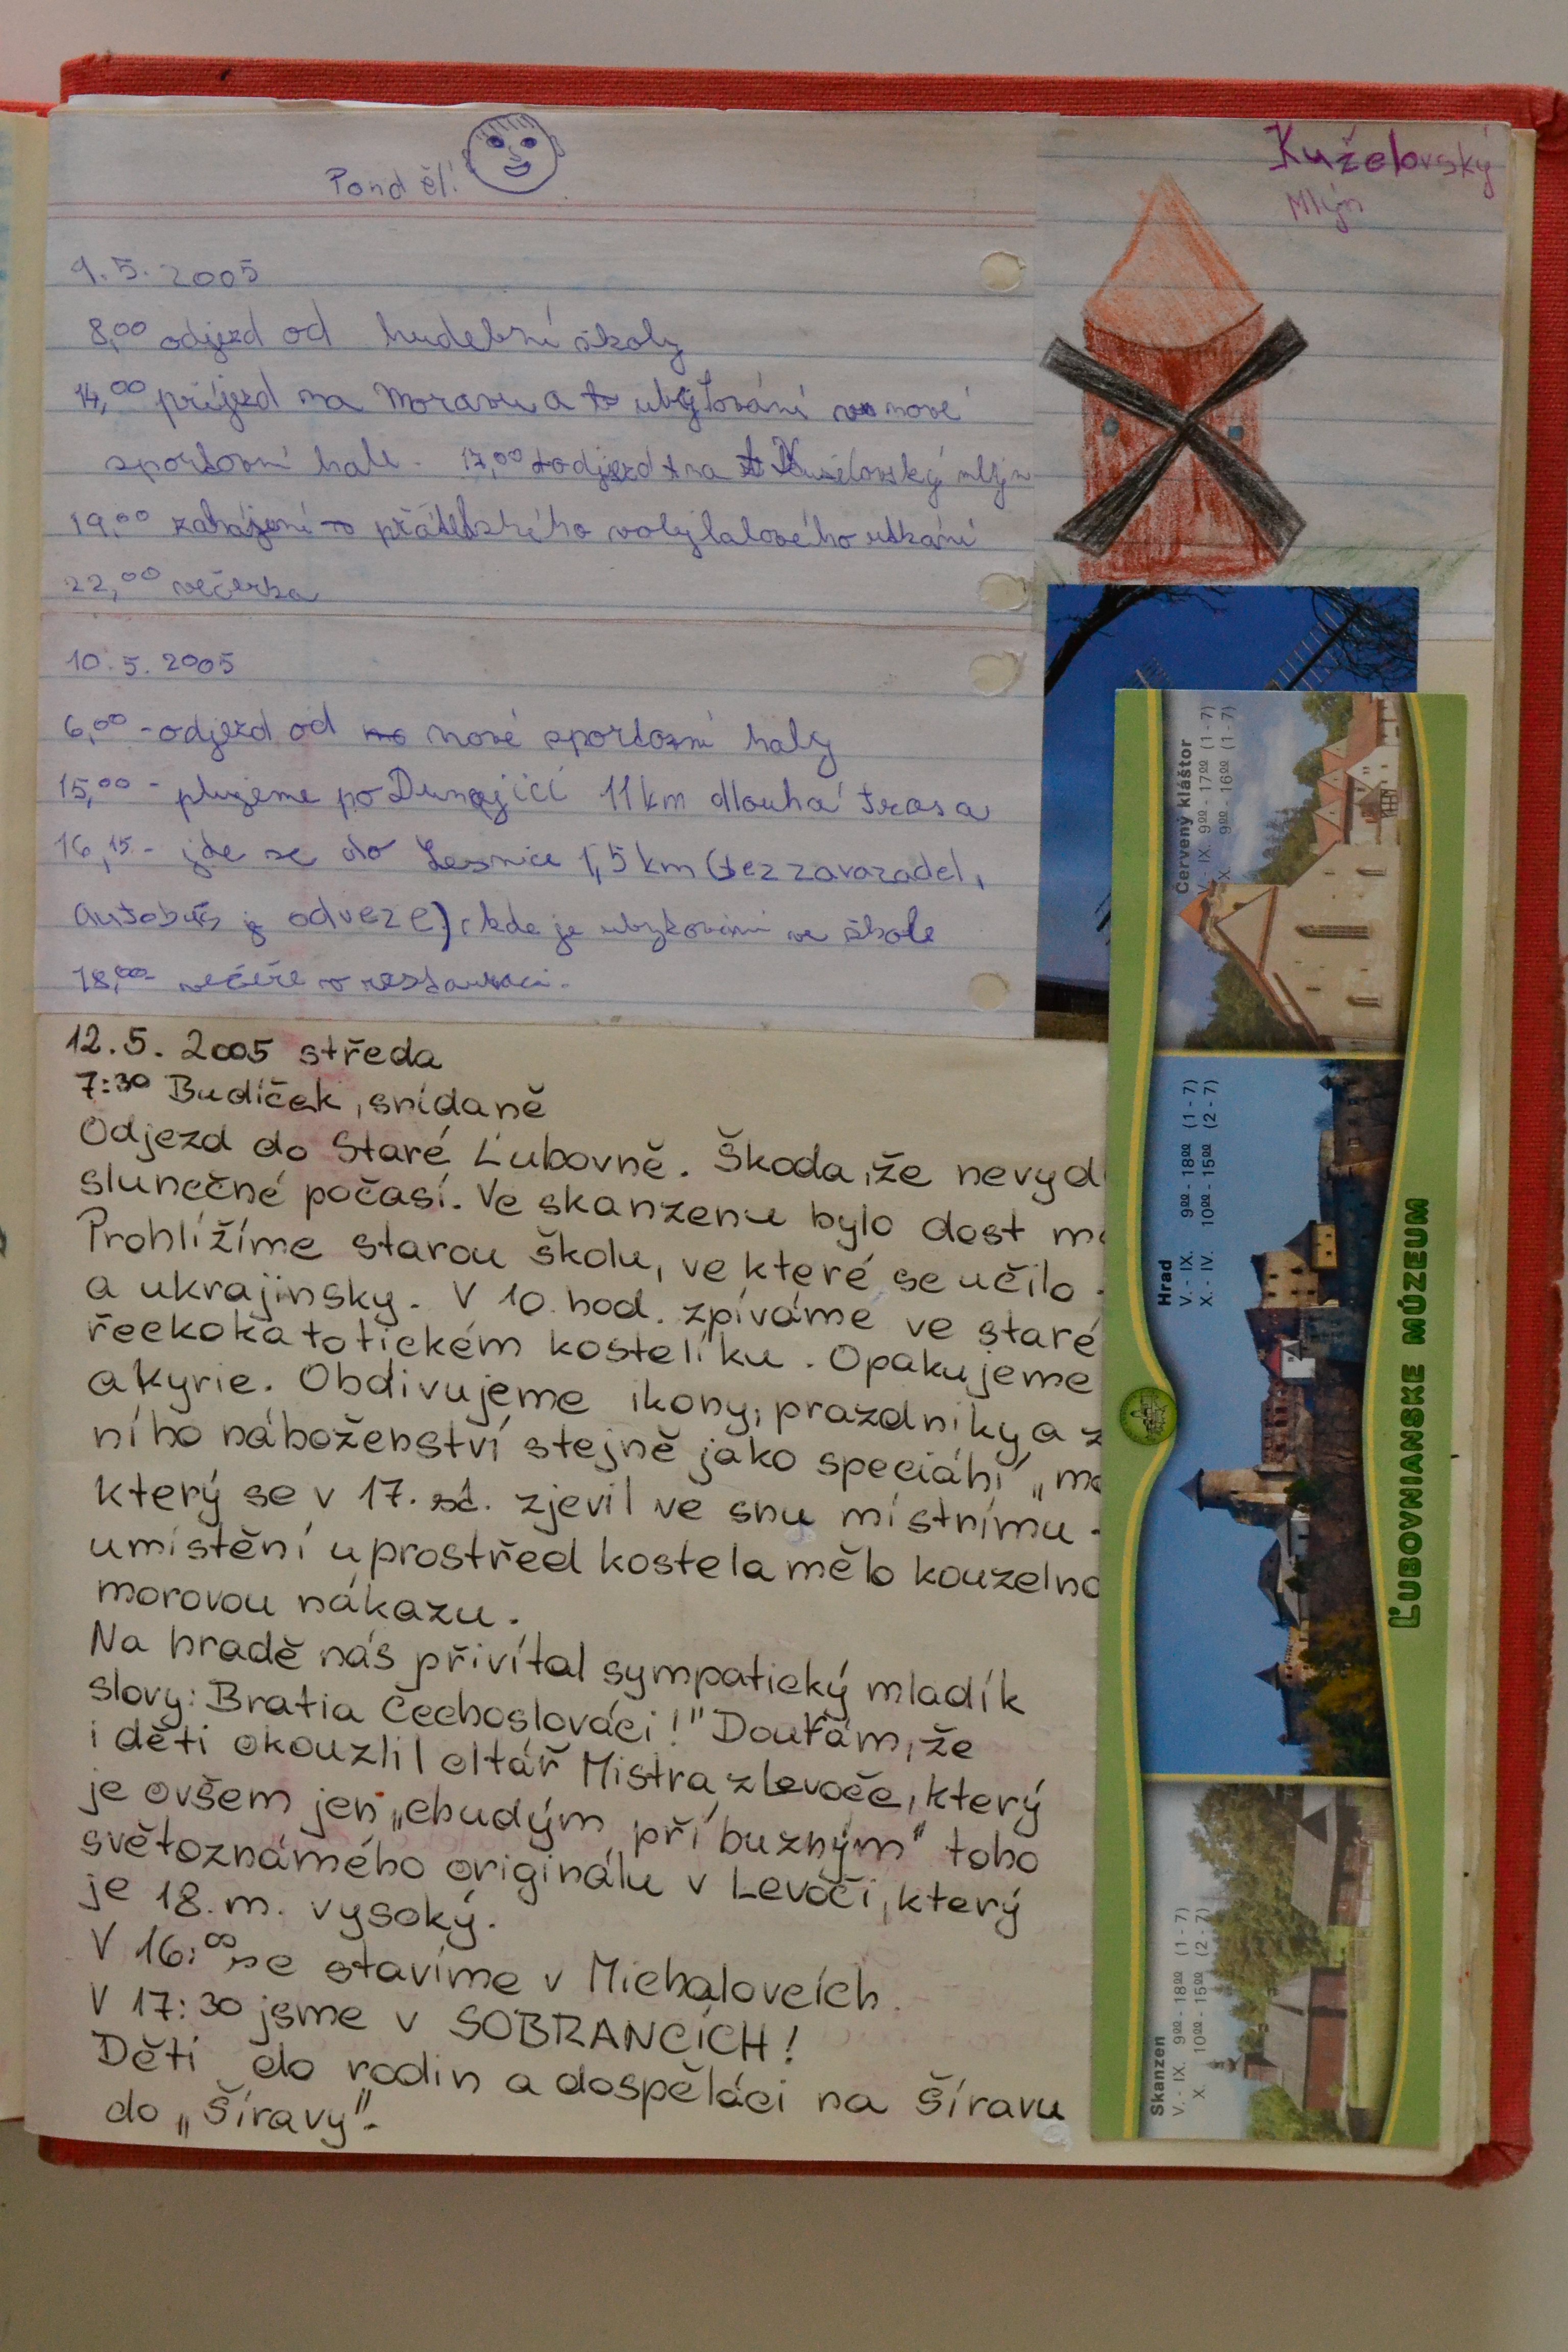 Pondělí
9.5.2005
8,00 odjezd od hudební školy
14,00 příjezd na Moravu a ubytování v nové
sportovní hale. 17,00 odjezd na Kuželovský mlýn
19,00 zahájení přátelského volejbalového utkání
22,00 večerka
10.5.2005
6,00 - odjezd od nové sportovní haly
15,00 - plujeme po Dunající 11 km dlouhá trasa
16,15 - jde se do Lesnice 1,5 km (bez zavazadel,
autobus je odveze), kde je ubytování ve škole
18,00 - večeře v restauraci.
12.5. 2005 středa
7:30 Budíček, snídaně
Odjezd do Staré Ľubovně. Škoda, že nevyd
slunečné počasí. Ve skanzenu bylo dost
Prohlížíme starou školu, ve které se učilo
a ukrajinsky. V 10. hod. zpíváme ve staré
řeckokatolickém kostelíku. Opakujeme
a Kyrie. Obdivujeme ikony, prazdniky a z
ního náboženství stejně jako speciální „
který se v 17. st. zjevil ve snu místnímu
umístění uprostřed kostela mělo kouzelno
morovou nákazu.
Na hradě nás přivítal sympatický mladík
slovy: Bratia Čechoslováci!" Doufám, že
i děti okouzlil oltář Mistra z Levoče, který
je ovšem jen „chudým příbuzným" toho
světoznámého originálu v Levoči, který
je 18. m. vysoký.
V 16:00 se stavíme v Michalovcích.
V 17:30 jsme v SOBRANCÍCH!
Děti do rodin a dospěláci na Šíravu
do „Šíravy".
Kuželovský
Mlýn
Červený kláštor
V. - IX. 900 - 1700 (1 - 7)
X. 900 - 1600 (1 - 7)
Hrad
V. - IX. 900 - 1800 (1 - 7)
X. - IV. 1000 - 1500 (2 - 7)
Skanzen
V. - IX. 900 - 1800 (1 - 7)
X. 1000 - 1500 (2 - 7)
ĽUBOVNIANSKE MÚZEUM